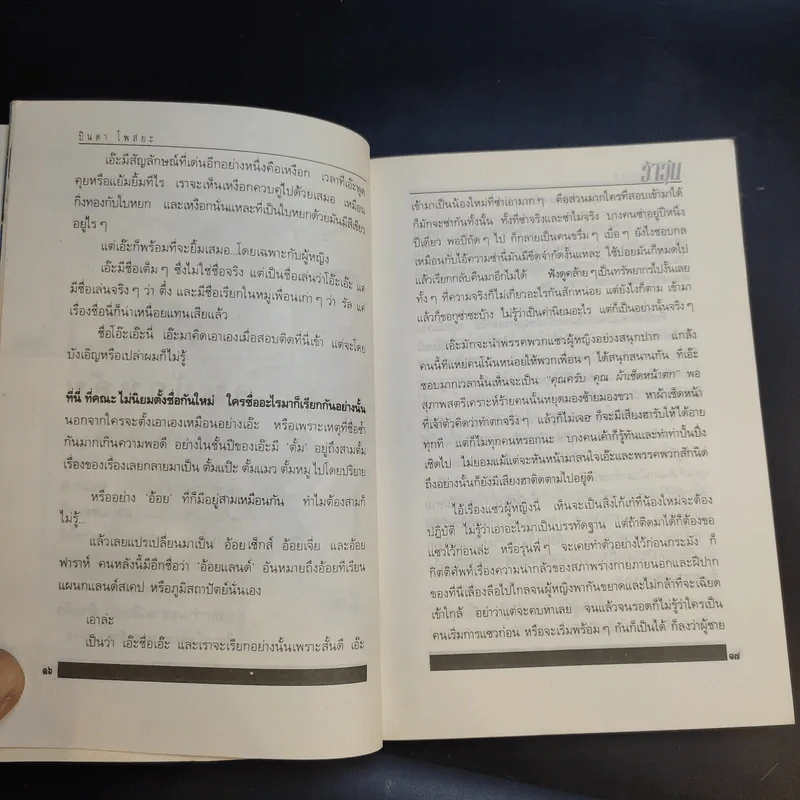 ปินดา โพสยะ
เอ๊ะมีสัญลักษณ์ที่เด่นอีกอย่างหนึ่งคือเหงือก เวลาที่เอ๊ะพูด
คุยหรือแย้มยิ้มทีไร เราจะเห็นเหงือกควบคู่ไปด้วยเสมอ เหมือน
กิ่งทองกับใบหยก และเหงือกนั่นแหละที่เป็นใบหยกด้วยมันมีสีเขียว
อยู่ไร ๆ
แต่เอ๊ะก็พร้อมที่จะยิ้มเสมอ...โดยเฉพาะกับผู้หญิง
เอ๊ะมีชื่อเต็ม ๆ ซึ่งไม่ใช่ชื่อจริง แต่เป็นชื่อเล่นว่าโอ๊ะเอ๊ะ แต่
มีชื่อเล่นจริง ๆ ว่า ตึ๋ง และมีชื่อเรียกในหมู่เพื่อนเก่า ๆ ว่า รัล แค่
เรื่องชื่อนี่ก็น่าเหนื่อยแทนเสียแล้ว
ชื่อโอ๊ะเอ๊ะนี่ เอ๊ะมาคิดเอาเองเมื่อสอบติดที่นี่เข้า แต่จะโดย
บังเอิญหรือเปล่าผมก็ไม่รู้
ที่นี่ ที่คณะ ไม่นิยมตั้งชื่อกันใหม่ ใครชื่ออะไรมาก็เรียกกันอย่างนั้น
นอกจากใครจะตั้งเอาเองเหมือนอย่างเอ๊ะ หรือเพราะเหตุที่ชื่อซ้ำ
กันมากเกินความพอดี อย่างในชั้นปีของเอ๊ะมี 'ตั้ม' อยู่ถึงสามตั้ม
เรื่องของเรื่องเลยกลายมาเป็น ตั้มแป๊ะ ตั้มแมว ตั้มหมู ไปโดยปริยาย
หรืออย่าง 'อ้อย' ที่ก็มีอยู่สามเหมือนกัน ทำไมต้องสามก็
ไม่รู้...
แล้วเลยแปรเปลี่ยนมาเป็น อ้อยเซ็กส์ อ้อยเจี่ย และอ้อย
ฟาราห์ คนหลังนี้มีอีกชื่อว่า 'อ้อยแลนด์' อันหมายถึงอ้อยที่เรียน
แผนกแลนด์สเคป หรือภูมิสถาปัตย์นั่นเอง
เอาล่ะ
เป็นว่า เอ๊ะชื่อเอ๊ะ และเราจะเรียกอย่างนั้นเพราะสั้นดี เอ๊ะ
๑๖
ว้าวุ่น
เข้ามาเป็นน้องใหม่ที่ซ่าเอามาก ๆ คือส่วนมากใครที่สอบเข้ามาได้
ก็มักจะซ่ากันทั้งนั้น ทั้งที่ซ่าจริงและซ่าไม่จริง บางคนซ่าอยู่ปีหนึ่ง
ปีเดียว พอปีถัด ๆ ไป ก็กลายเป็นคนขรึม ๆ เบื่อ ๆ ยังไงชอบกล
เหมือนกับไอ้ความซ่านี่มันมีขีดจำกัดงั้นแหละ ใช้บ่อยมันก็หมดไป
แล้วเรียกกลับคืนมาอีกไม่ได้ ฟังดูคล้าย ๆ เป็นทรัพยากรไปงั้นเลย
ทั้ง ๆ ที่ความจริงก็ไม่เกี่ยวอะไรกันสักหน่อย แต่ยังไงก็ตาม เข้ามา
แล้วก็ขอกูซ่าซะบ้าง ไม่รู้ว่าเป็นค่านิยมอะไร แต่ก็เป็นอย่างนั้นจริง ๆ
เอ๊ะมักจะนำพรรคพวกแซวผู้หญิงอย่างสนุกปาก แกล้ง
คนนี้ทีแหย่คนโน้นหน่อยให้พวกเพื่อน ๆ ได้สนุกสนานกัน ที่เอ๊ะ
ชอบมากเวลานั้นเห็นจะเป็น "คุณครับ คุณ ผ้าเช็ดหน้าตก" พอ
สุภาพสตรีเคราะห์ร้ายคนนั้นหยุดมองซ้ายมองขวา หาผ้าเช็ดหน้า
ที่เจ้าตัวคิดว่าทำตกจริง ๆ แล้วก็ไม่เจอ ก็จะมีเสียงฮารับให้ได้อาย
ทุกที แต่ก็ไม่ทุกคนหรอกนะ บางคนเค้าก็รู้ทันและทำท่าปั้นปึ่ง
เชิดไป ไม่ยอมแม้แต่จะหันหน้ามาสนใจเอ๊ะและพรรคพวกสักนิด
ถึงอย่างนั้นก็ยังมีเสียงฮาติดตามไปอยู่ดี
ไอ้เรื่องแซวผู้หญิงนี่ เห็นจะเป็นสิ่งโก้เก๋ที่น้องใหม่จะต้อง
ปฏิบัติ ไม่รู้ว่าเอาอะไรมาเป็นบรรทัดฐาน แต่ถ้าติดมาได้ก็ต้องขอ
แซวไว้ก่อนล่ะ หรือรุ่นพี่ ๆ จะเคยทำตัวอย่างไว้ก่อนกระมัง ก็
กิตติศัพท์เรื่องความน่ากลัวของสภาพร่างกายภายนอกและฝีปาก
ของที่นี่เลื่องลือไปไกลจนผู้หญิงพากันขยาดและไม่กล้าที่จะเฉียด
เข้าใกล้ อย่าว่าแต่จะคบหาเลย จนแล้วจนรอดก็ไม่รู้ว่าใครเป็น
คนเริ่มการแซวก่อน หรือจะเริ่มพร้อม ๆ กันก็เป็นได้ ก็ลงว่าผู้ชาย
๑๗